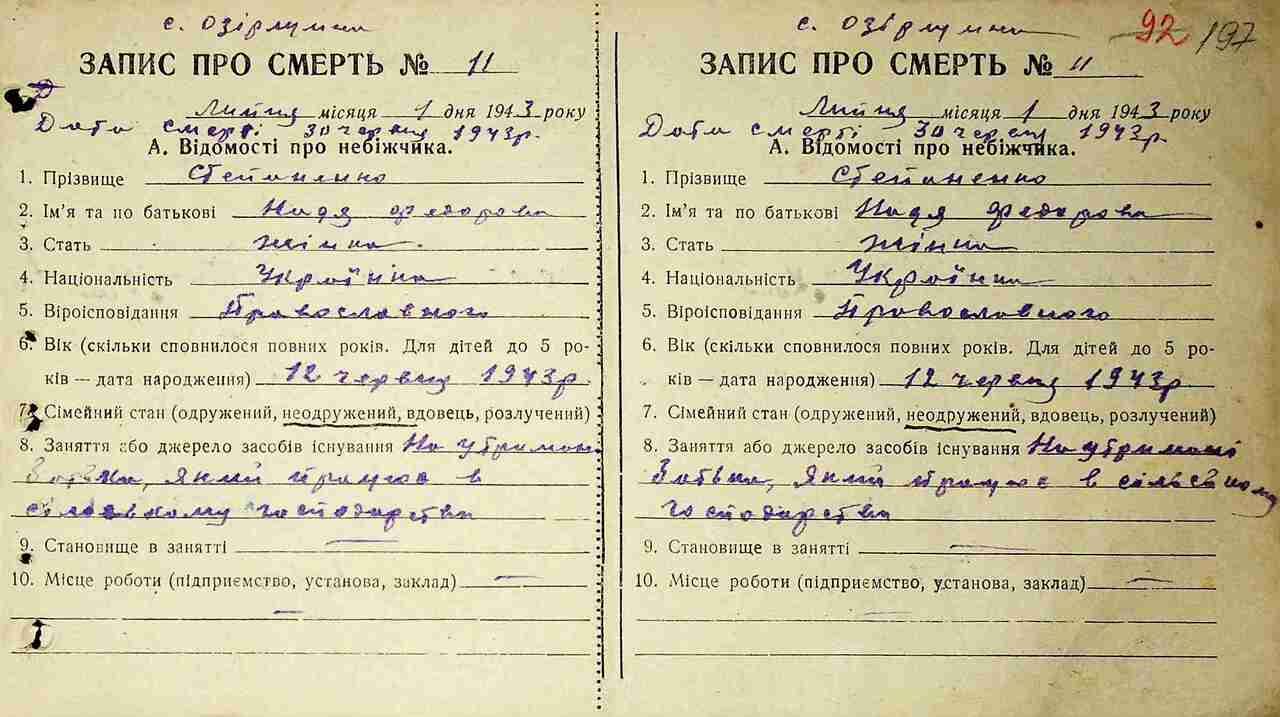 с. Озірлумна
ЗАПИС ПРО СМЕРТЬ № 11
Липня місяця 1 дня 1943 року
Дата смерті 30 червня 1943р.
А. Відомості про небіжчика.
1. Прізвище Степаненко
2. Ім'я та по батькові Надя Федоровна
3. Стать жінка.
4. Національність Українка
5. Віроісповідання Православного
6. Вік (скільки сповнилося повних років. Для дітей до 5 ро-
ків — дата народження) 12 червня 1943р.
7. Сімейний стан (одружений, неодружений, вдовець, розлучений)
8. Заняття або джерело засобів існування На утриман
батька, який працює в
сільському господарстві
9. Становище в занятті —
10. Місце роботи (підприємство, установа, заклад) —
—
92 197
ЗАПИС ПРО СМЕРТЬ № 11
Липня місяця 1 дня 1943 року
Дата смерті 30 червня 1943р.
А. Відомості про небіжчика.
1. Прізвище Степаненко
2. Ім'я та по батькові Надя Федоровна
3. Стать жінка
4. Національність Українка
5. Віроісповідання Православного
6. Вік (скільки сповнилося повних років. Для дітей до 5 ро-
ків — дата народження) 12 червня 1943р.
7. Сімейний стан (одружений, неодружений, вдовець, розлучений)
8. Заняття або джерело засобів існування На утримані
батька, який працює в сільському
господарстві
9. Становище в занятті —
10. Місце роботи (підприємство, установа, заклад) —